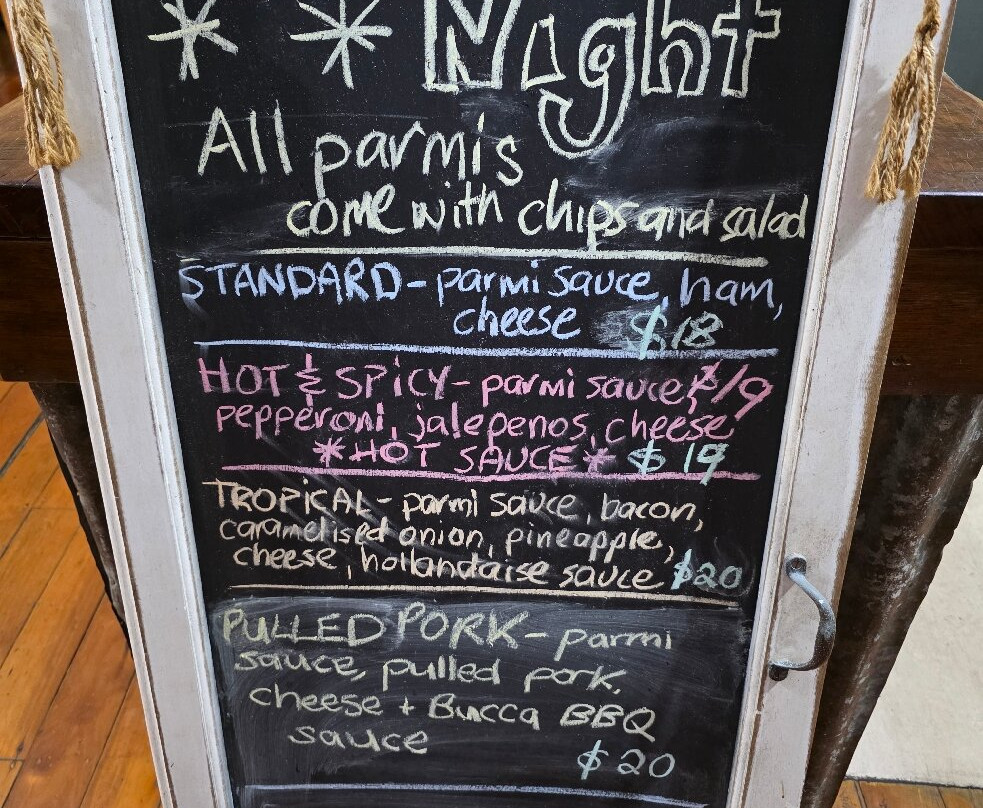 ** Night
All parmis
come with chips and salad
STANDARD - parmi sauce, ham,
cheese $18
HOT & SPICY - parmi sauce, $19
pepperoni, jalepenos, cheese
*HOT SAUCE* $19
TROPICAL - parmi sauce, bacon,
caramelised onion, pineapple,
cheese, hollandaise sauce $20
PULLED PORK - parmi
sauce, pulled pork,
cheese + Bucca BBQ
sauce
$20